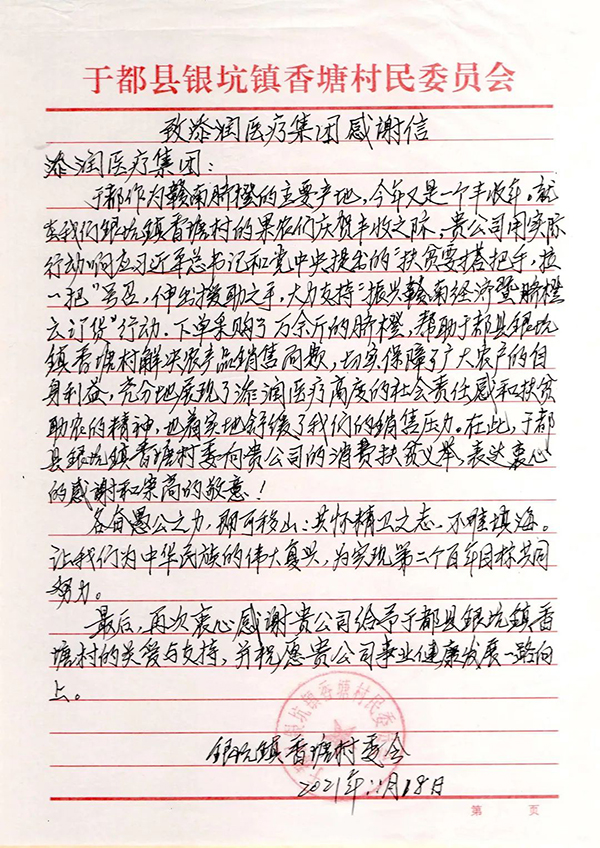 于都县银坑镇香塘村民委员会
致添润医疗集团感谢信
添润医疗集团：
于都作为赣南脐橙的主要产地，今年又是一个丰收年。就
在我们银坑镇香塘村的果农们庆贺丰收之际，贵公司用实际
行动响应习近平总书记和党中央提出的"扶贫要搭把手，拉
一把"号召，伸出援助之手，大力支持"振兴赣南经济暨脐橙
云订货"行动，下单采购了万余斤的脐橙，帮助于都县银坑
镇香塘村解决农产品销售问题，切实保障了广大农户的自
身利益，充分地展现了添润医疗高度的社会责任感和扶贫
助农的精神，也着实地舒缓了我们的销售压力。在此，于都
县银坑镇香塘村委向贵公司的消费扶贫义举，表达衷心
的感谢和崇高的敬意！
各奋愚公之力，即可移山；共怀精卫之志，不难填海。
让我们为中华民族的伟大复兴，为实现第二个百年目标共同
努力。
最后，再次衷心感谢贵公司给予于都县银坑镇香
塘村的关爱与支持，并祝愿贵公司事业健康发展一路向
上。
银坑镇香塘村委会
2021年11月18日
于都县银坑镇香塘村民委员会
第 页